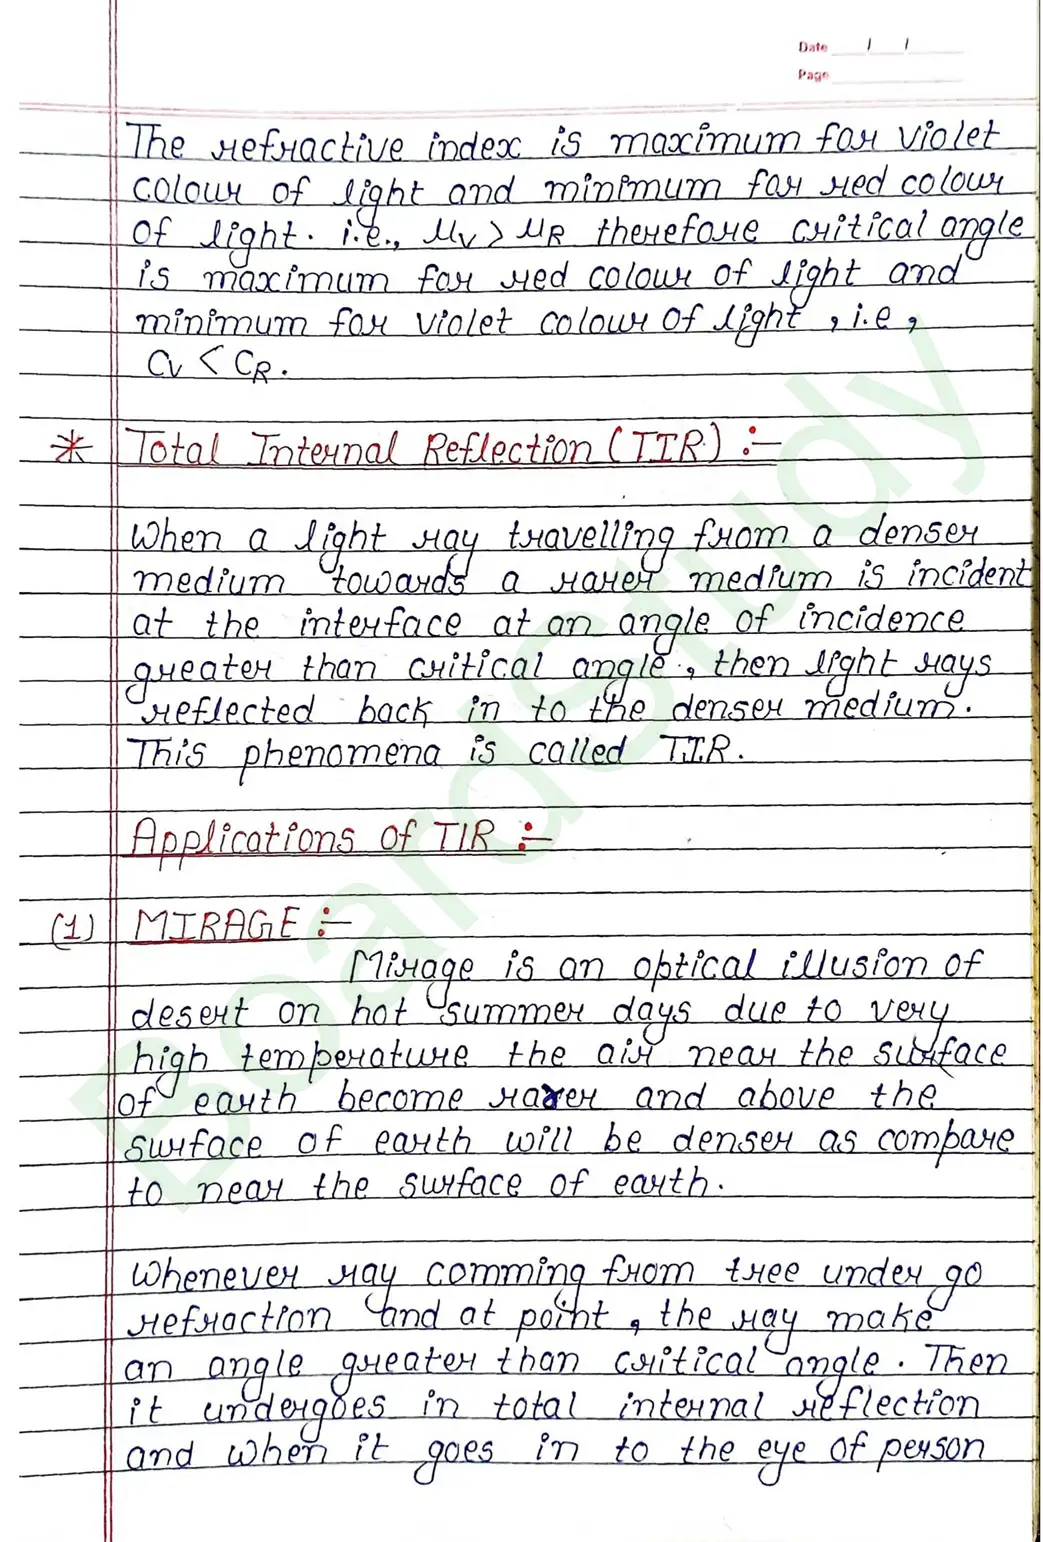 Date / /
Page
The refractive index is maximum for violet
colour of light and minimum for red colour
of light. i.e., μV > μR therefore critical angle
is maximum for red colour of light and
minimum for violet colour of light, i.e,
CV < CR.
* Total Internal Reflection (TIR) :-
When a light ray travelling from a denser
medium towards a rarer medium is incident
at the interface at an angle of incidence
greater than critical angle, then light rays
reflected back in to the denser medium.
This phenomena is called TIR.
Applications of TIR :-
(1) MIRAGE :-
Mirage is an optical illusion of
desert on hot summer days due to very
high temperature the air near the surface
of earth become rarer and above the
surface of earth will be denser as compare
to near the surface of earth.
Whenever ray comming from tree under go
refraction and at point, the ray make
an angle greater than critical angle. Then
it undergoes in total internal reflection
and when it goes in to the eye of person
BoardStudy